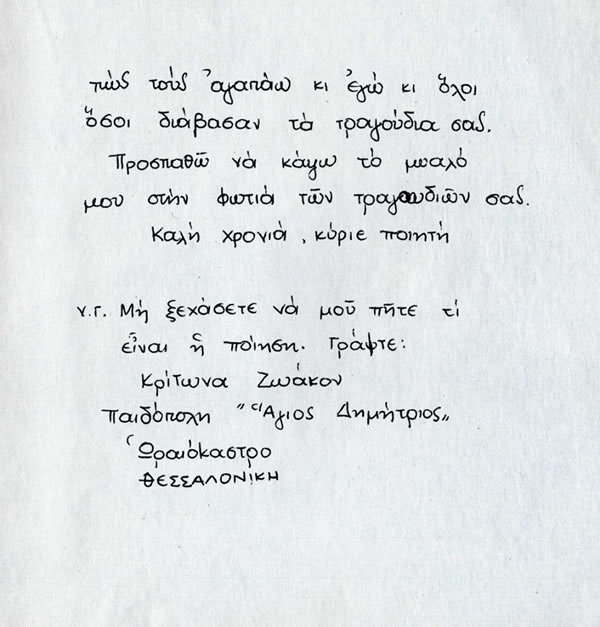 πὼς τοὺς ἀγαπάω κι ἐγὼ κι ὅλοι
ὅσοι διάβασαν τὰ τραγούδια σας.
Προσπαθῶ νὰ κάψω τὸ μυαλό
μου στὴν φωτιὰ τῶν τραγουδιῶν σας.
Καλὴ χρονιά, κύριε ποιητή
Υ.Γ. Μὴ ξεχάσετε νὰ μοῦ πῆτε τί
εἶναι ἡ ποίηση. Γράψτε:
Κρίτωνα Ζωάκον
Παιδόπολη "Ἅγιος Δημήτριος"
Ὡραιόκαστρο
ΘΕΣΣΑΛΟΝΙΚΗ